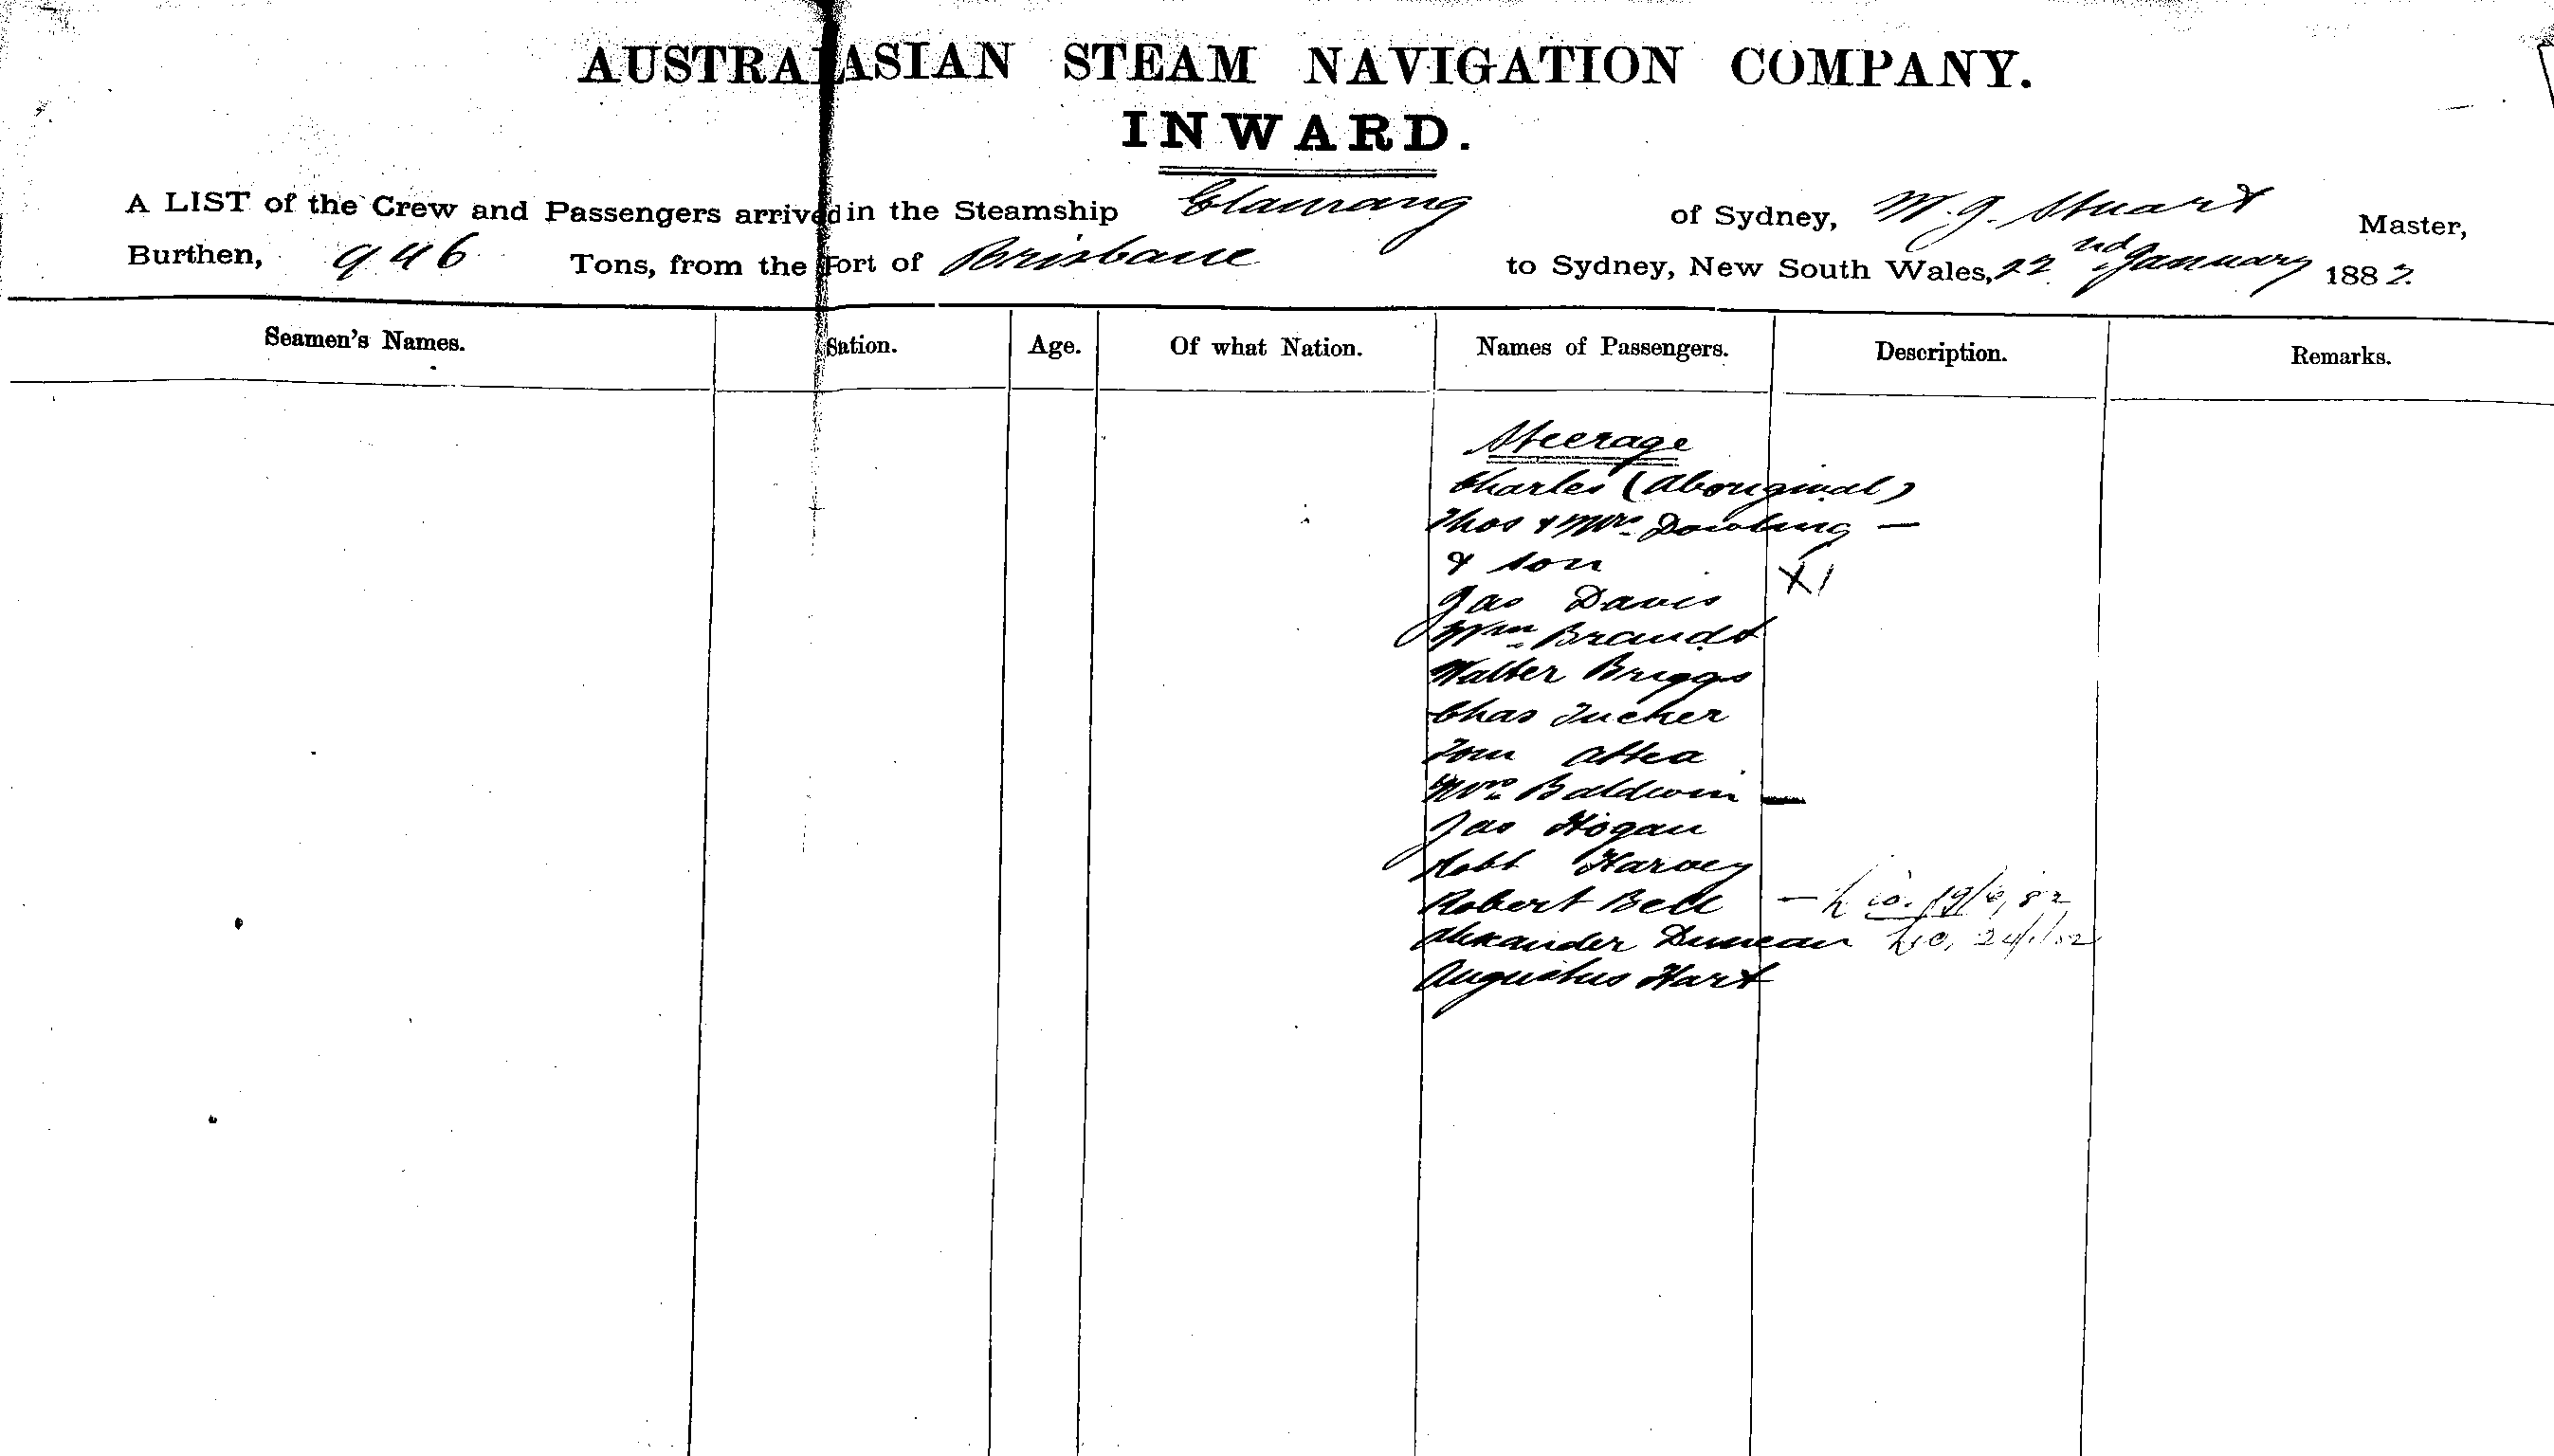 AUSTRALASIAN STEAM NAVIGATION COMPANY.
INWARD.
A LIST of the Crew and Passengers arrived in the Steamship of Sydney, Stuart Master,
Burthen, 946 Tons, from the Port of Brisbane to Sydney, New South Wales, 22nd January 1882.
Seamen's Names. Station. Age. Of what Nation. Names of Passengers. Description. Remarks.
Steerage
Charles (Aboriginal)
Thos & Mrs Dowling —
& son
Jas Davis X1
Wm Brandt
Walter Briggs
Chas Tucker
Tom
Mrs Baldwin —
Jas Hogan
Robt Harvey
Robert Bell —
Alexander Duncan
Augustus Hart